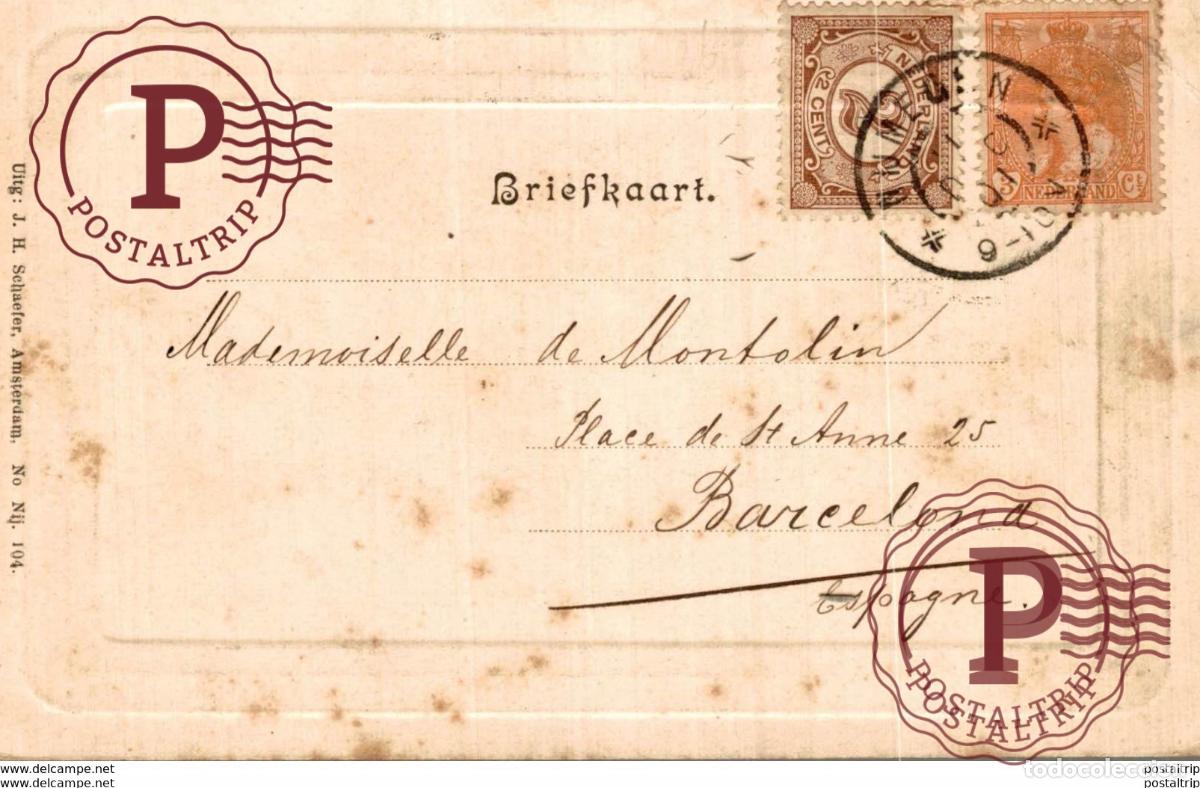 POSTALTRIP
Uitg: J. H. Schaefer, Amsterdam. No Nij. 104.
Briefkaart.
NEDERLAND
CENT
3 NEDERLAND Ct
NIJMEGEN
Mademoiselle de Montolin
Place de St Anne 25
Barcelona
Espagne.
POSTALTRIP
POSTALTRIP
www.delcampe.net
postaltrip
todocoleccion
www.delcampe.net
postaltrip